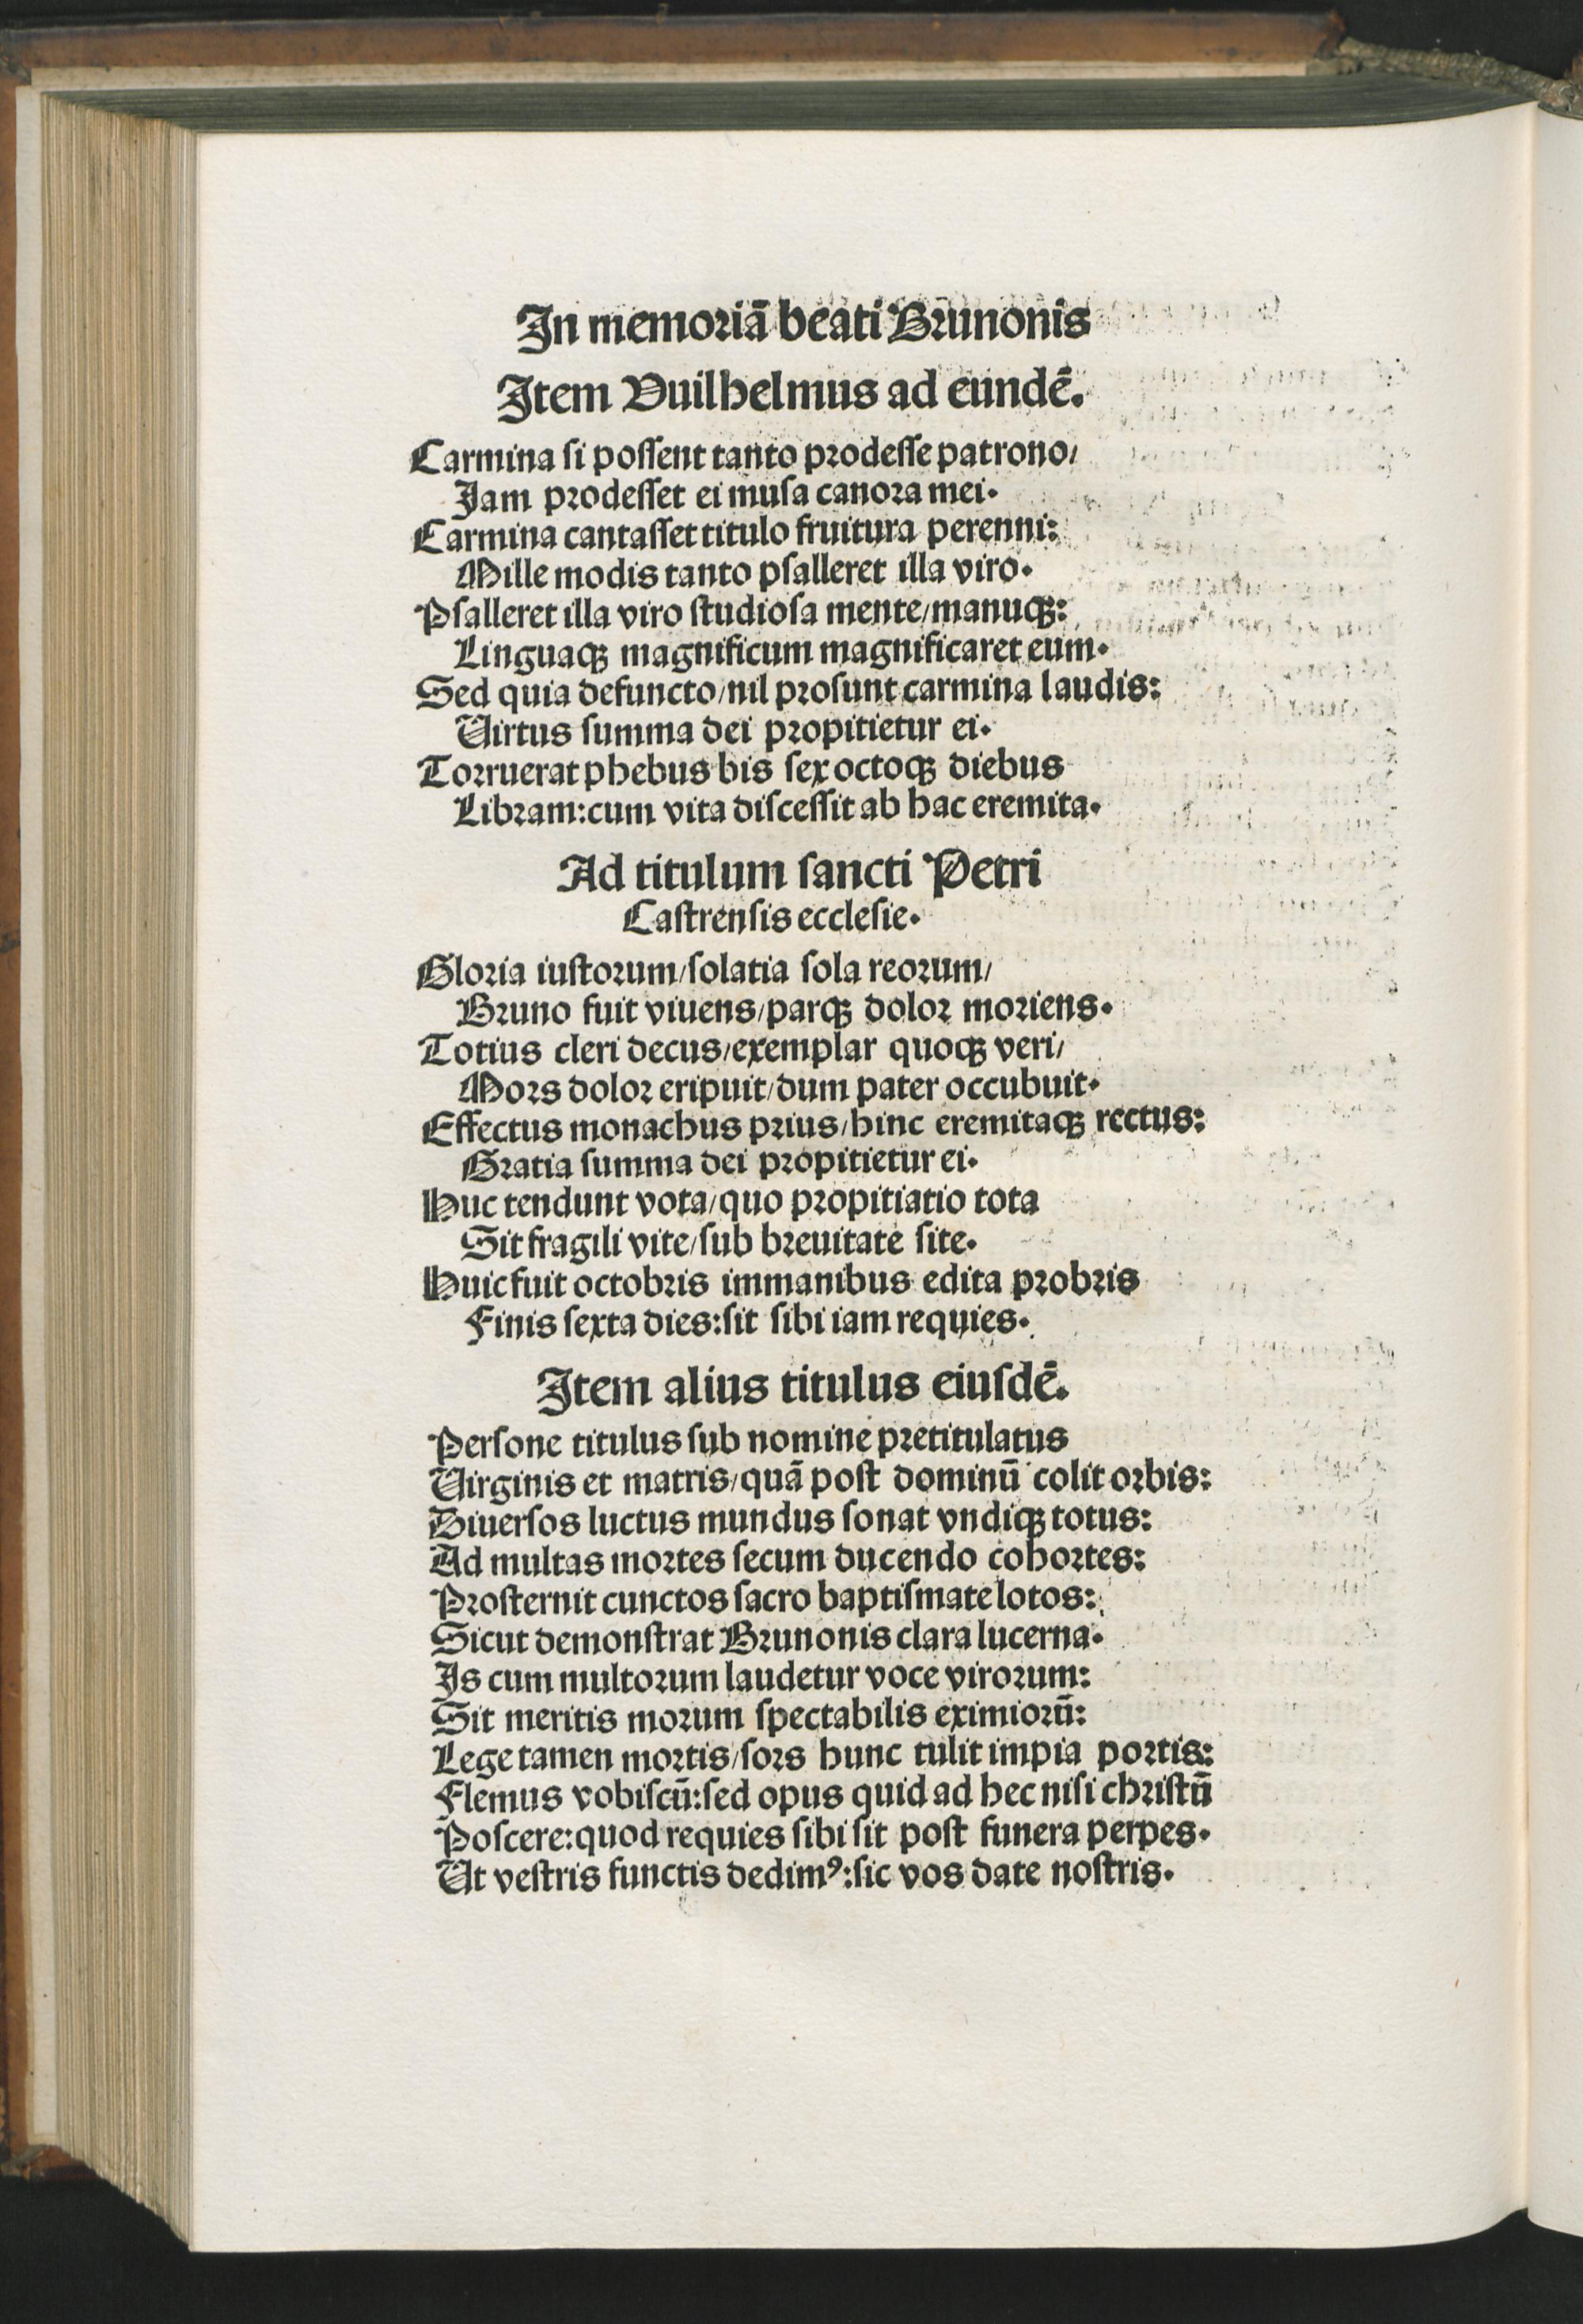 In memoriā beati Brunonis
Item Vuilhelmus ad eundē.
Carmina si possent tanto prodesse patrono/
Jam prodesset ei musa canora mei.
Carmina cantasset titulo fruitura perenni:
Mille modis tanto psalleret illa viro.
Psalleret illa viro studiosa mente/manuqꝫ:
Linguaqꝫ magnificum magnificaret eum.
Sed quia defuncto/nil prosunt carmina laudis:
Virtus summa dei propitietur ei.
Torruerat phebus bis sex octoqꝫ diebus
Libram:cum vita discessit ab hac eremita.
Ad titulum sancti Petri
Castrensis ecclesie.
Gloria iustorum/solatia sola reorum/
Bruno fuit viuens/parqꝫ dolor moriens.
Totius cleri decus/exemplar quoqꝫ veri/
Mors dolor eripuit/dum pater occubuit.
Effectus monachus prius/hinc eremitaqꝫ rectus:
Gratia summa dei propitietur ei.
Huc tendunt vota/quo propitiatio tota
Sit fragili vite/sub breuitate site.
Huic fuit octobris immanibus edita probris
Finis sexta dies:sit sibi iam requies.
Item alius titulus eiusdē.
Persone titulus sub nomine pretitulatus
Virginis et matris/quā post dominū colit orbis:
Diuersos luctus mundus sonat vndiqꝫ totus:
Ad multas mortes secum ducendo cohortes:
Prosternit cunctos sacro baptismate lotos:
Sicut demonstrat Brunonis clara lucerna.
Is cum multorum laudetur voce virorum:
Sit meritis morum spectabilis eximiorū:
Lege tamen mortis/sors hunc tulit impia portis:
Flemus vobiscū:sed opus quid ad hec nisi christū
Poscere:quod requies sibi sit post funera perpes.
Ut vestris functis dedimꝰ:sic vos date nostris.